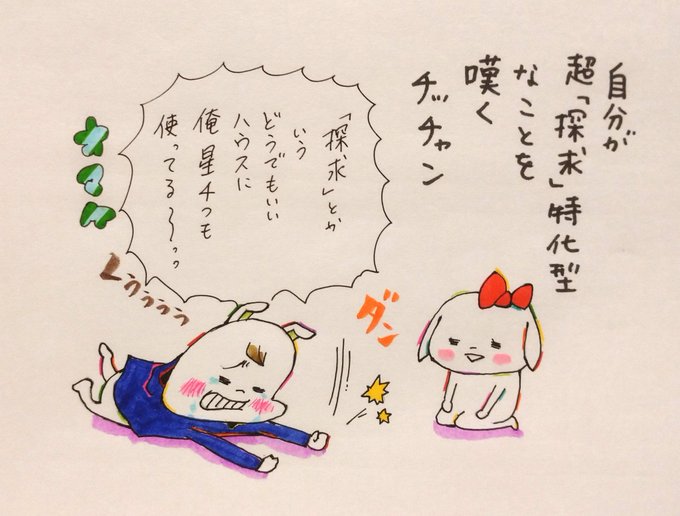 自分が
超「探求」特化型
なことを
嘆く
チッチャン
「探求」とか
いう
どうでもいい
ハウスに
俺星4つも
使ってる〜〜っっ
くぅぅぅぅ
ダン